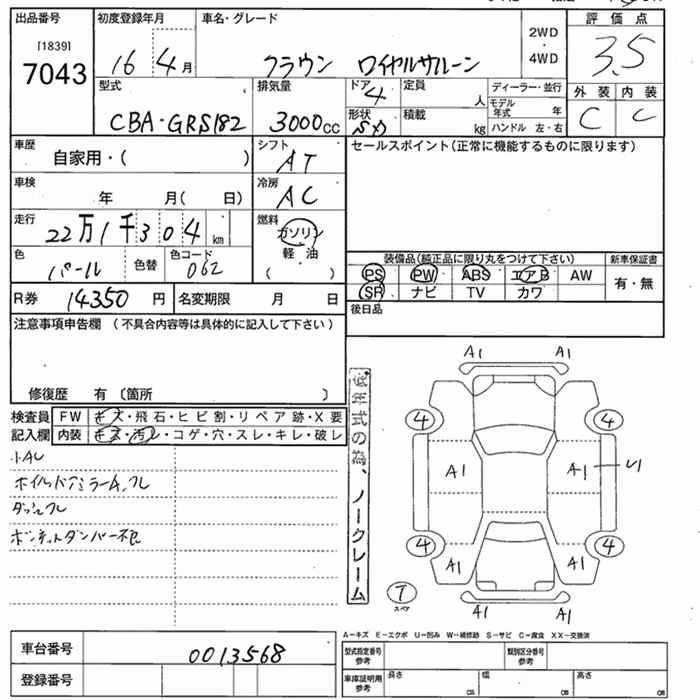 出品番号 初度登録年月 車名・グレード 2WD ・ 4WD 評価点
[1839]
7043 16 4月 クラウン ロイヤルサルーン 3.5
型式 排気量 ドア 定員 ディーラー・並行 外装 内装
CBA-GRS182 3000cc 4 人 モデル年式 年 C C
形状 積載 kg ハンドル 左・右
車歴 自家用・( ) シフト AT セールスポイント(正常に機能するものに限ります)
車検 年 月( 日) 冷房 AC
走行 22万1千304km 燃料 ガソリン
軽油
( )
色 パール 色替 色コード 062 装備品(純正品に限り丸をつけて下さい) 新車保証書
PS PW ABS エアB AW 有・無
SR ナビ TV カワ
R券 14350円 名変期限 月 日 後日品
注意事項申告欄(不具合内容等は具体的に記入して下さい)
修復歴 有〔箇所 〕
検査員 FW キズ・飛石・ヒビ割・リペア跡・X要
記入欄 内装 キズ・汚レ・コゲ・穴・スレ・キレ・破レ
小AU
ダッシュフレ
ボンネットダンパー不良
低年式の為、ノークレーム
A1 A1
4 4
A1 A1 U1
4 4
A1 A1
7
スペア
A1 A1
A-キズ E-エクボ U-凹み W-補修跡 S-サビ C-腐食 XX-交換済
車台番号 0013568 型式指定番号 参考 類別区分番号 参考
登録番号 車庫証明用 参考 長さ cm 幅 cm 高さ cm